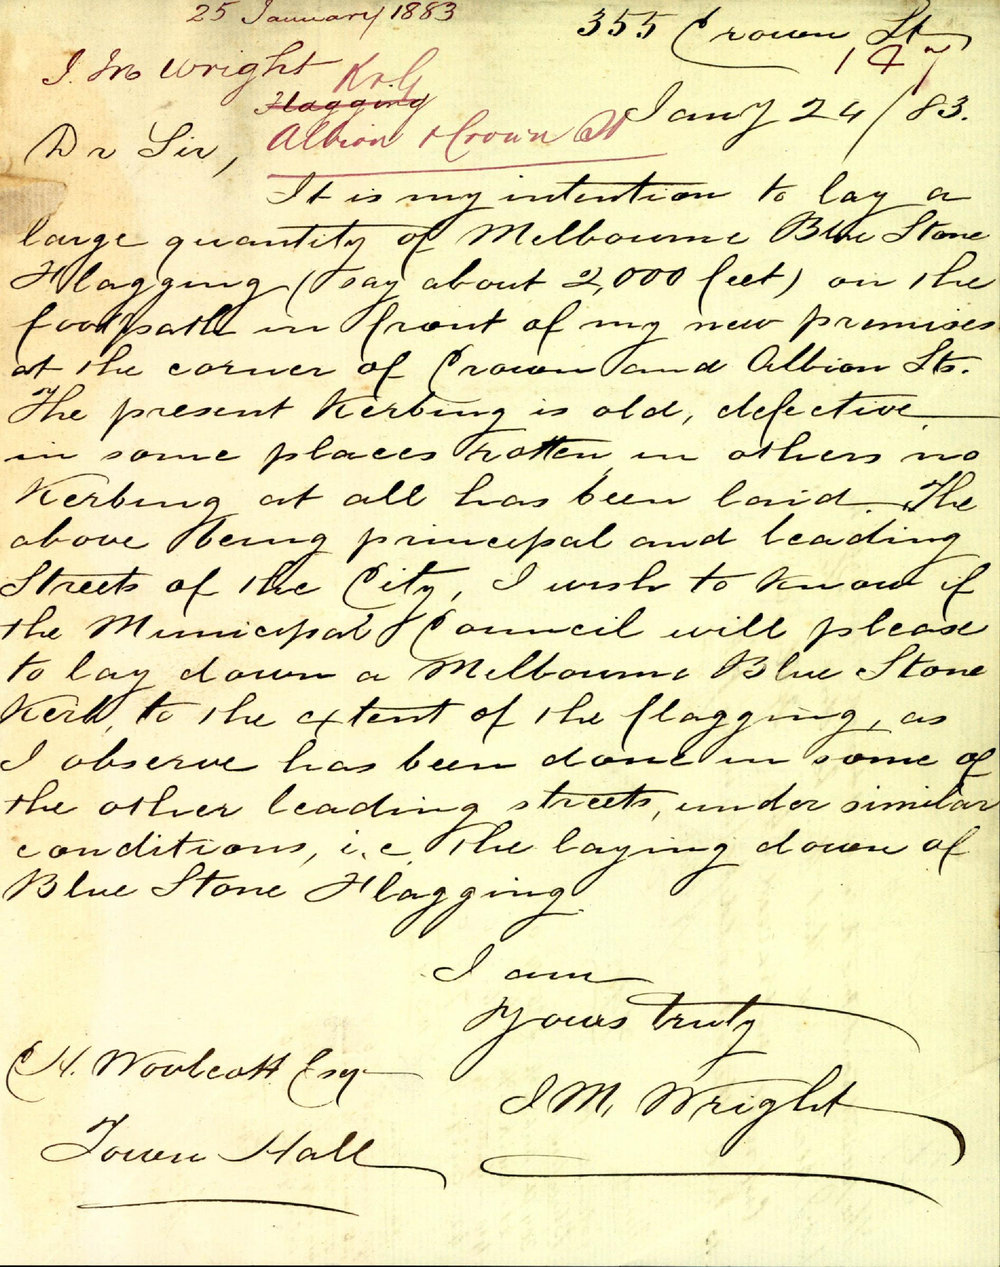 25 January 1883
355 Crown St
147
J. M. Wright
K & G
Flagging
Albion & Crown St
Jany 24/83.
Dr Sir,
It is my intention to lay a
large quantity of Melbourne Blue Stone
Flagging (say about 2,000 feet) on the
footpath in front of my new premises
at the corner of Crown and Albion Sts.
The present Kerbing is old, defective
in some places rotten, in others no
Kerbing at all has been laid. The
above being principal and leading
Streets of the City, I wish to know if
the Municipal Council will please
to lay down a Melbourne Blue Stone
Kerb, to the extent of the flagging, as
I observe has been done in some of
the other leading streets, under similar
conditions, i.e. the laying down of
Blue Stone Flagging.
I am
Yours truly
J M. Wright
C H. Woolcott Esq
Town Hall